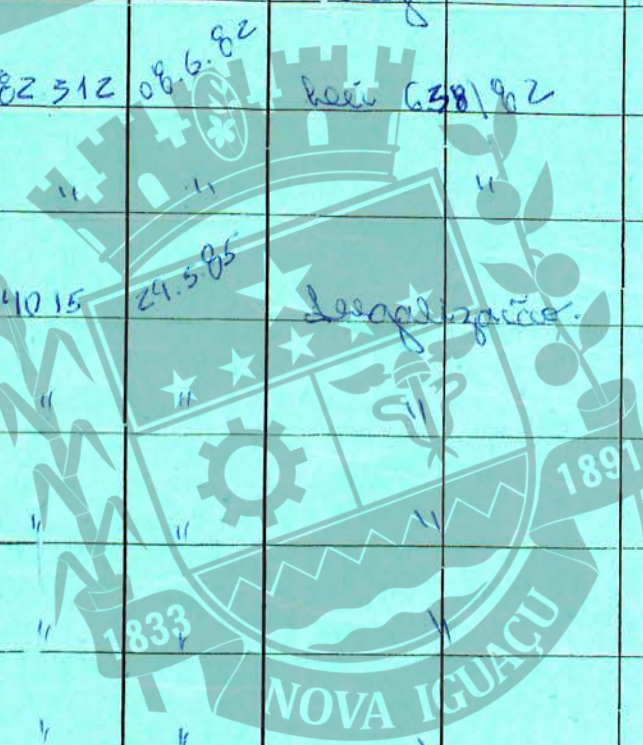 82 312 08.6.82 Lei 638/82
" " "
4015 24.5.85 Legalização.
" " "
" " "
1891
" " "
1833
NOVA IGUAÇU
" "